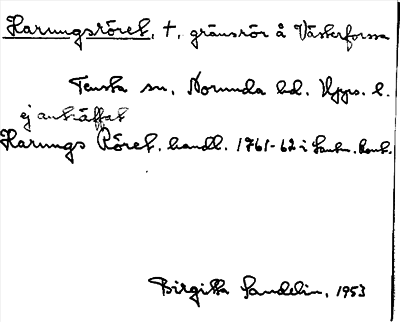 Harungsröret, †, gränsrör å Västerforssa
Tensta sn, Norunda hd. Upps. l.
ej anträffat
Harungs Röret, handl. 1761-62 i Lantm. kont.
Birgitta Sandelin, 1953